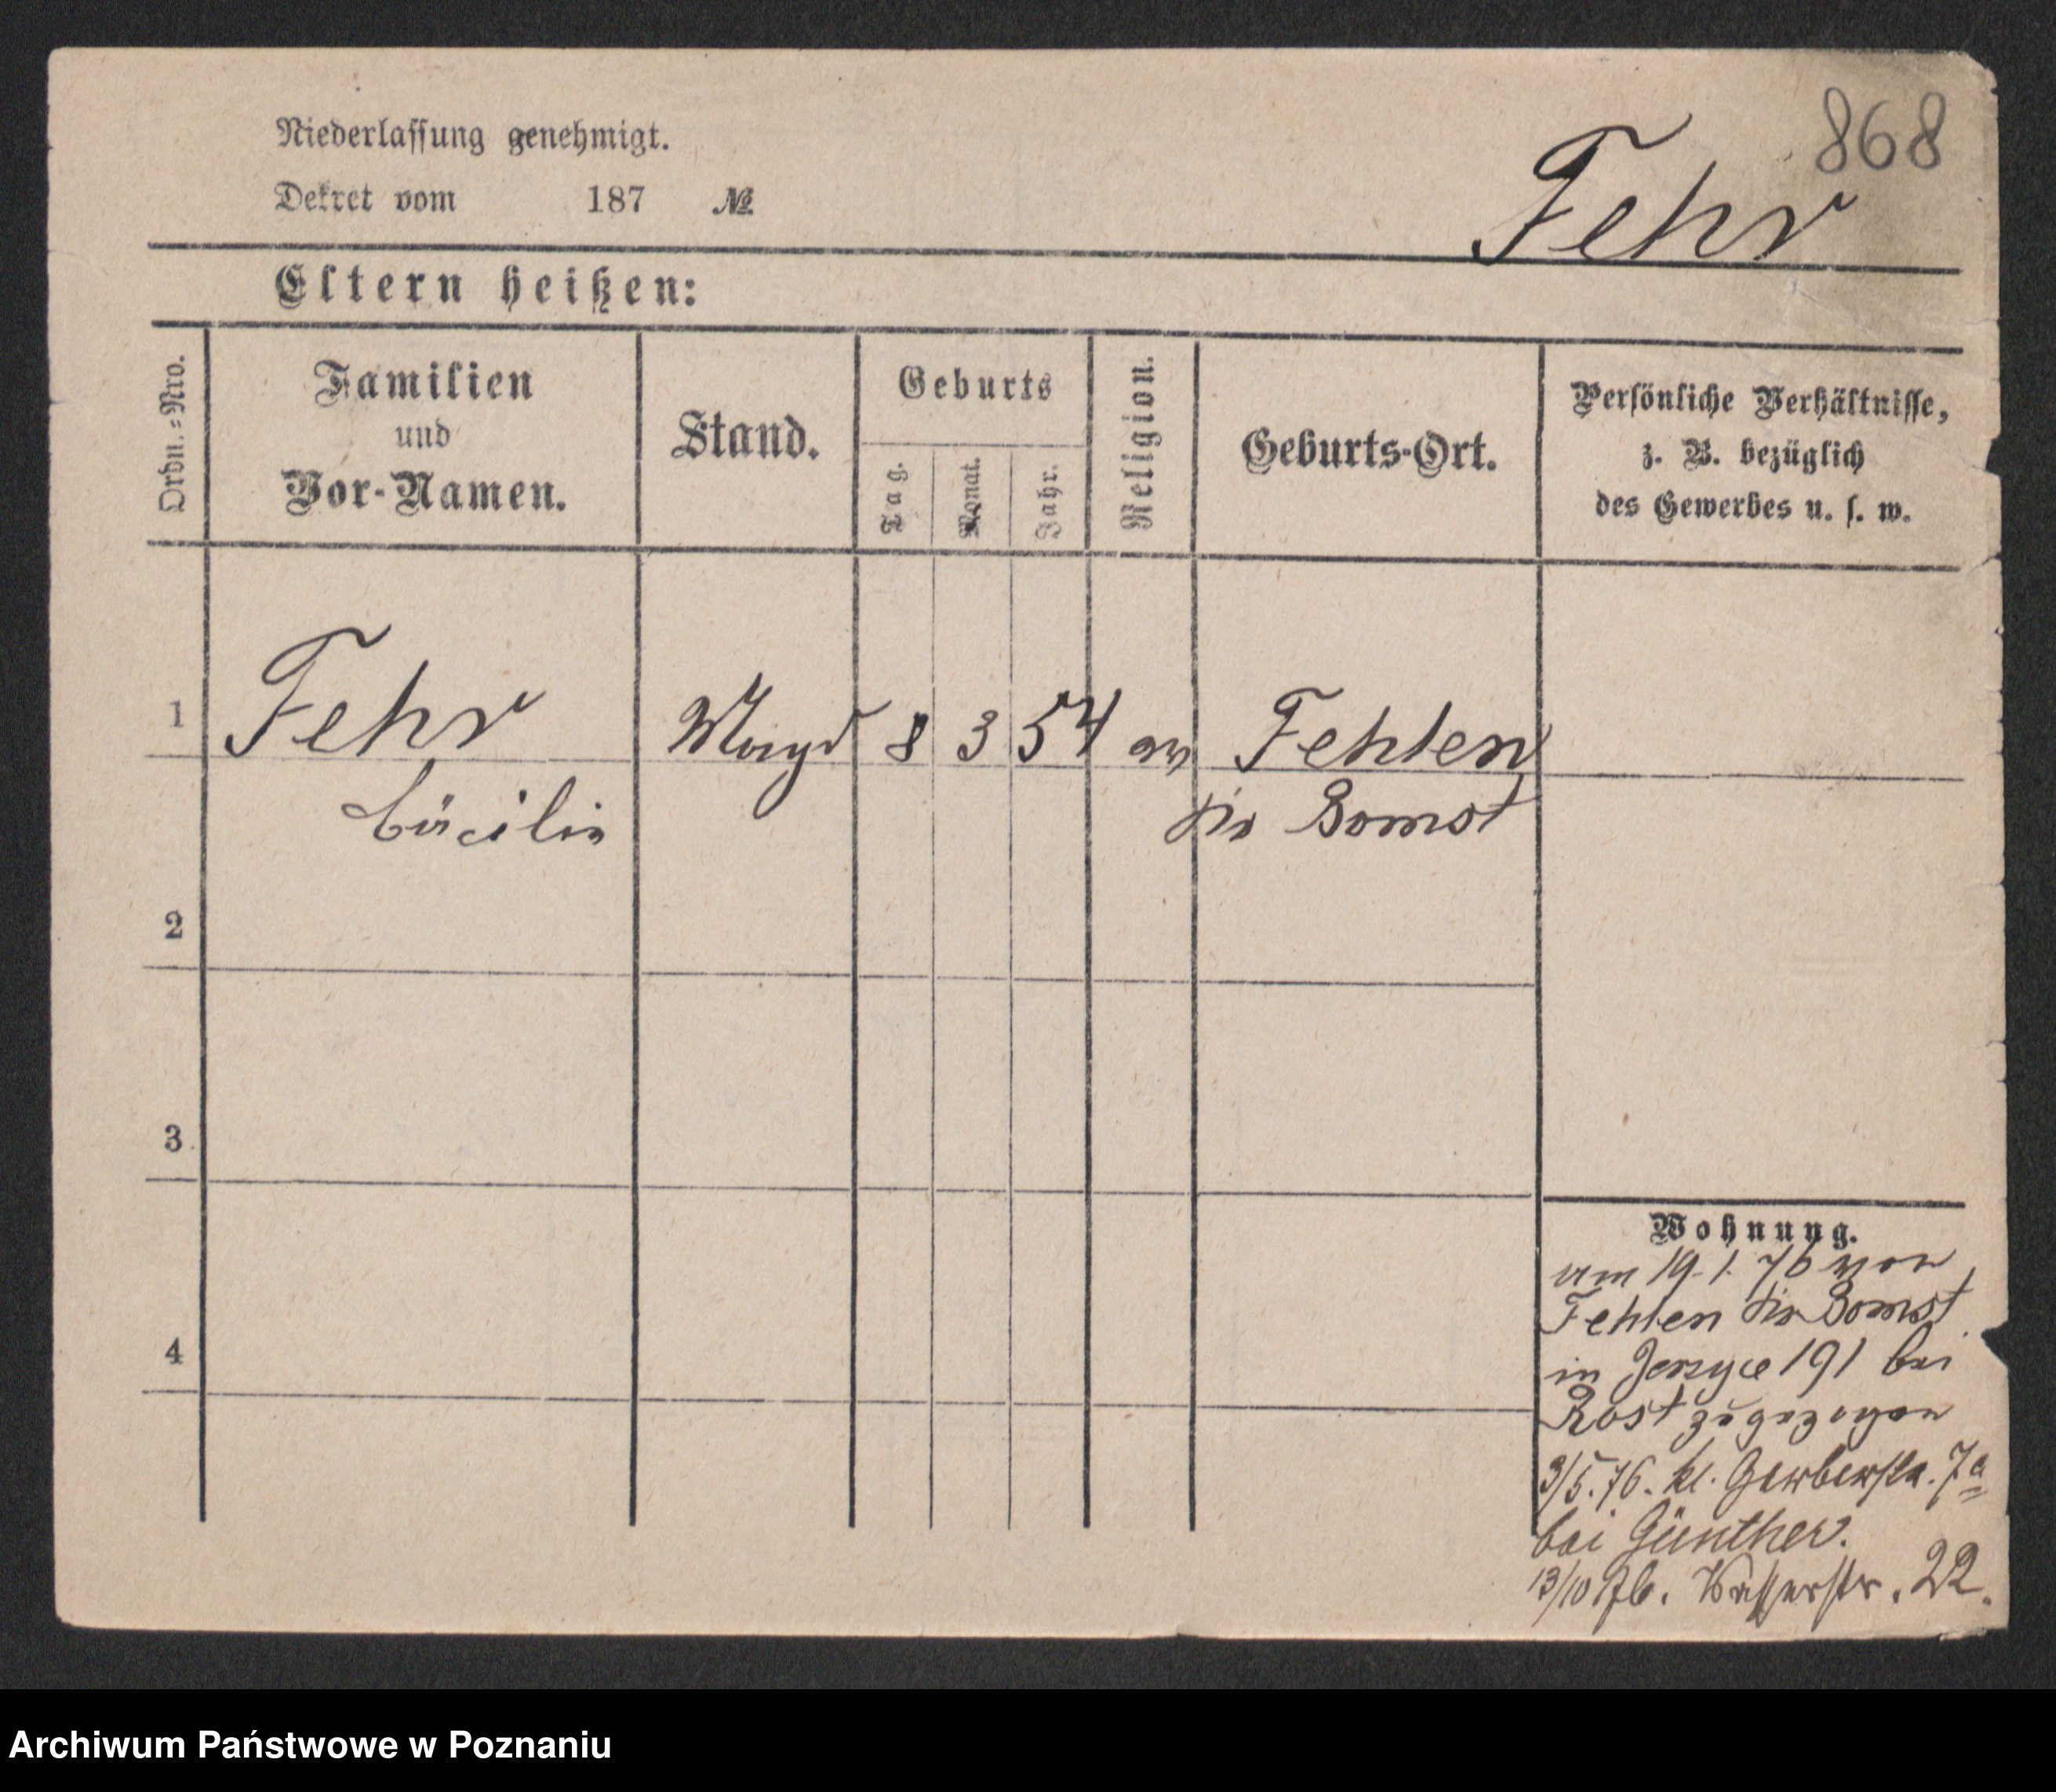 868
Niederlassung genehmigt.
Dekret vom 187 №
Fehr
Eltern heißen:
Ordn.=Nro.
Familien
und
Vor-Namen.
Stand.
Geburts
Tag.
Monat.
Jahr.
Religion.
Geburts-Ort.
Persönliche Verhältnisse,
z. B. bezüglich
des Gewerbes u. s. w.
1 Fehr Magd 8 3 54 ev Fehlen
Cäcilie Krs Bomst
2
3
4
Wohnung.
am 19. 1. 76 von
Fehlen Krs Bomst
in Jerzyce 191 bei
Rost zugezogen
3/5. 76. kl. Gerberstr. 7a
bei Günther.
13/10 76. Wasserstr. 22.
Archiwum Państwowe w Poznaniu